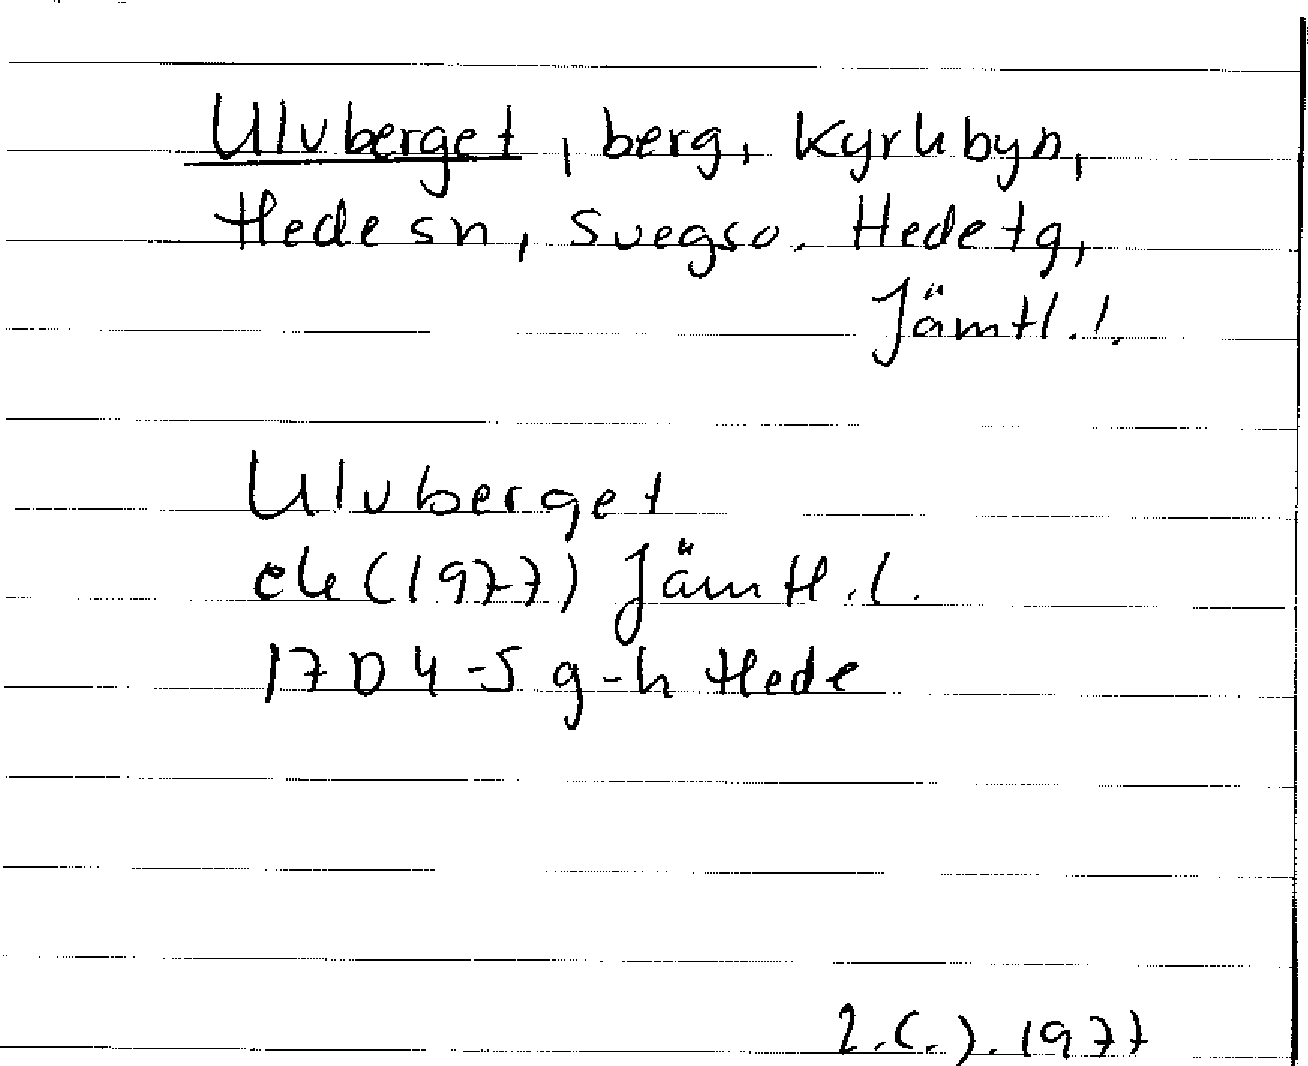 Ulvberget, berg, Kyrkbyn,
Hede sn, Svegs o. Hede tg,
Jämtl. l.
Ulvberget
ek (1977) Jämtl. l.
17D 4-5 g-h Hede
1977